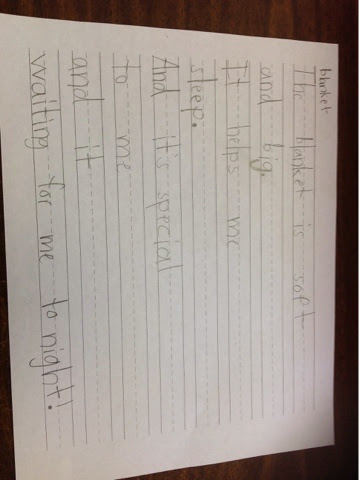 blanket
The blanket is soft
and big.
It helps me
sleep.
And it's special
to me
and it
waiting for me to night!